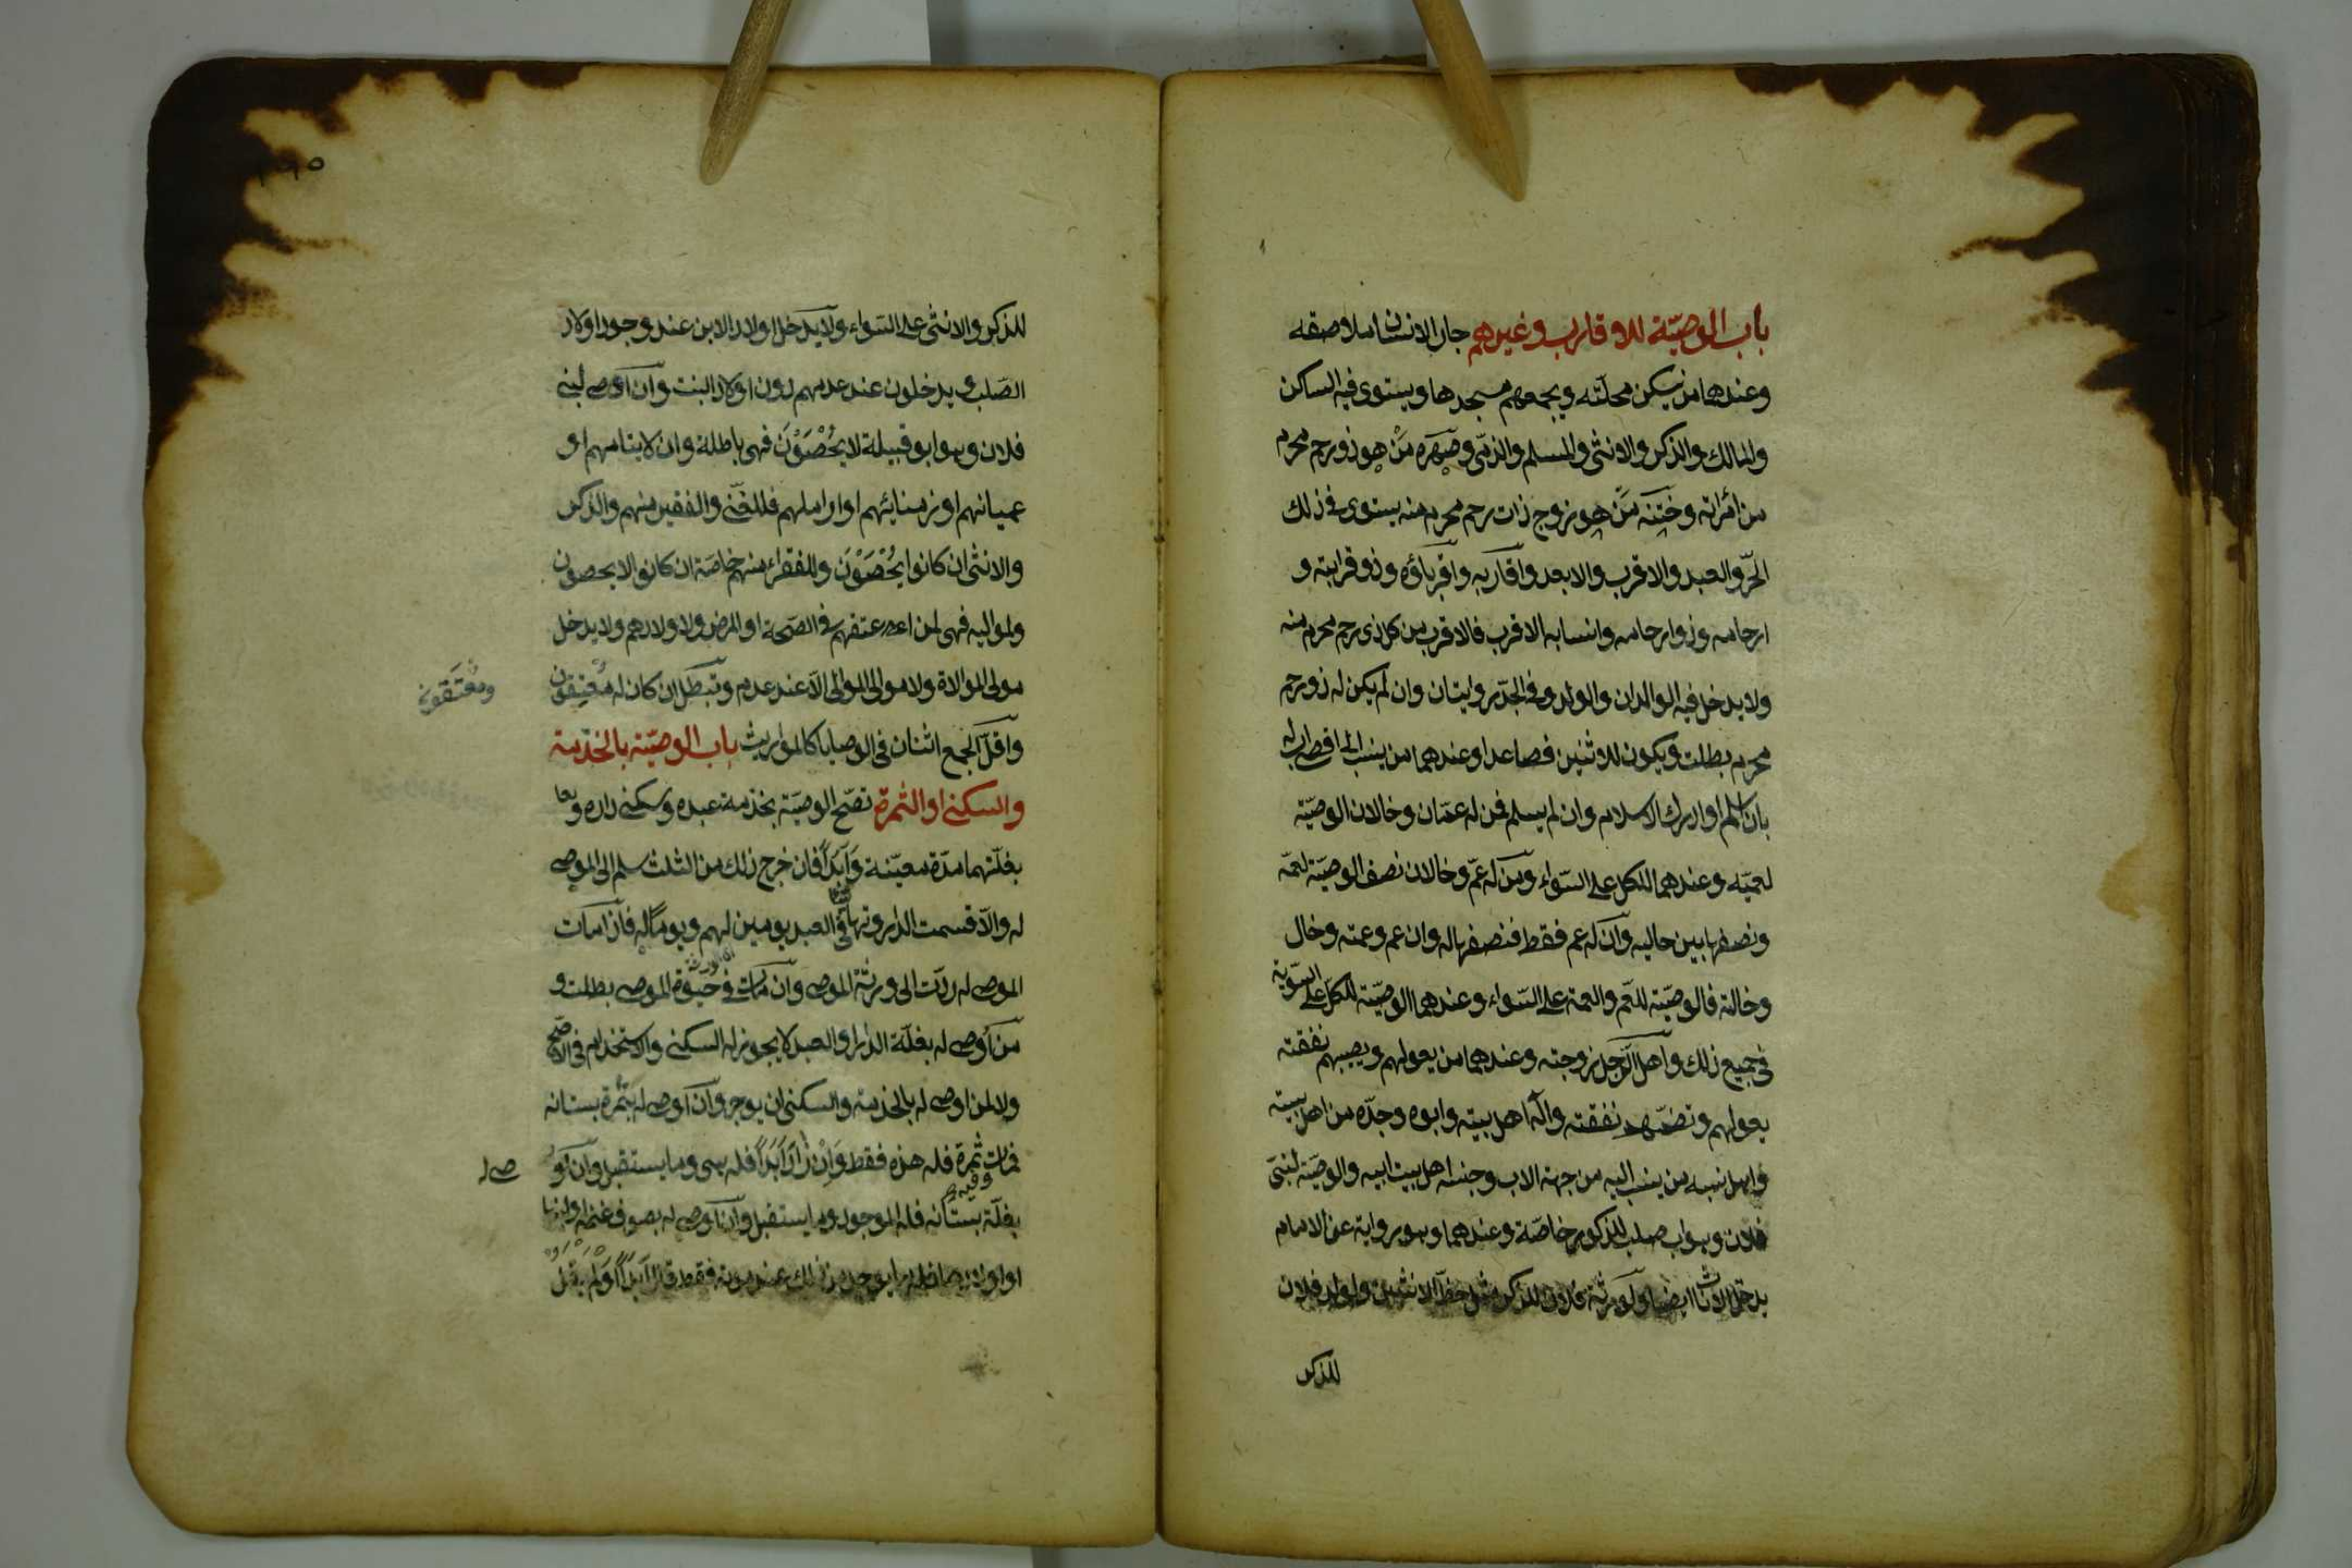 باب الوصيّة للاقارب وغيرهم جار الانسان ملاصقه
وعندهما من يسكن محلّته ويجمعهم مسجدها ويستوى فيه الساكن
والمالك والذكر والانثى والمسلم والذمّى وصهره مَنْ هو ذو رحم محرم
من امرأته وختنه مَنْ هو زوج ذات رحم محرم منه يستوى فى ذلك
الحرّ والعبد والاقرب والابعد واقاربه واقرباؤه وذو قرابته و
ارحامه وذوارحامه وانسابه الاقرب فالاقرب من كل ذى رحم محرم منه
ولا يدخل فيه الوالدان والولد وفى الجدّ روايتان وان لم يكن له ذو رحم
محرم بطلت ويكون للاثنين فصاعدا وعندهما من ينسب الى اقصى اب له
بان اسلم او ادرك الاسلام وان لم يسلم فمن له عمّان وخالان الوصيّة
لعمّيه وعندهما للكل على السّواء ومن له عمّ وخالان نصف الوصيّة لعمّه
ونصفها بين خاليه وان له عم فقط فنصفها له وان عم وعمته وخال
وخالة فالوصيّة للعّم والعمة على السّواء وعندهما الوصيّة للكل على السّوية
فى جميع ذلك واهل الرّجل زوجته وعندهما من يعولهم ويصيبهم نفقته
يعولهم وتضمّهم نفقته وآله اهل بيته وابوه وجدّه من اهل بيته
واهل نسبه من ينسب اليه من جهة الاب وجنسه اهل بيت ابيه والوصيّة لبنى
فلان وهو اب صلب للذكور خاصّة وعندهما وهو رواية عن الامام
يدخل الاناث ايضا ولورثة فلان للذكر مثل حظّ الانثيين ولولد فلان
للذكر
للذكر والانثى على السّواء ولا يدخل اولاد الابن عند وجود اولاد
الصّلب ويدخلون عند عدمهم دون اولاد البنت وان اوصى لبنى
فلان وهو ابو قبيلة لا يُحْصَوْنَ فهى باطلة وان لايتامهم او
عميانهم او زمنائهم او اراملهم فللغنّى والفقير منهم والذكر
والانثى ان كانوا يُحْصَوْنَ وللفقراء منهم خاصّة ان كانوا لا يحصون
ولمواليه فهى لمن اعتقهم فى الصّحة او المرض ولاولادهم ولا يدخل
مولى الموالاة ولا موالى الموالى الّا عند عدم وتبطل ان كان له معتِقون
ومُعْتَقون
واقلّ الجمع اثنان فى الوصايا كالمواريث باب الوصيّة بالخدمة
والسكنى او الثمرة تصّح الوصيّة بخدمة عبده وسكنى داره و
بغلّتهما مدّة معيّنة وابداً فان خرج ذلك من الثلث سلم الى الموصى
له والّا قسمت الدار وتهايئا فى العبد يومين لهم ويوماً له فاذا مات
الموصى له ردّت الى ورثة الموصى وان مات فى حيوة الموصى بطلت و
من اوصى له بغلّة الدار او العبد لا يجوز له السكنى والاستخدام فى الاصّح
ولا لمن اوصى له بالخدمة والسكنى ان يوجر وان اوصى له بثمرة بستانه
فمات وفيه ثمرة فله هذه فقط وان زاد ابداً فله هى وما يستقبل وان اوصى له
بغلّة بستانه فله الموجود وما يستقبل وان اوصى له بصوف غنمه او لبنها
او اولادها فله ما يوجد من ذلك عند موته فقط قال ابداً او لم يقل